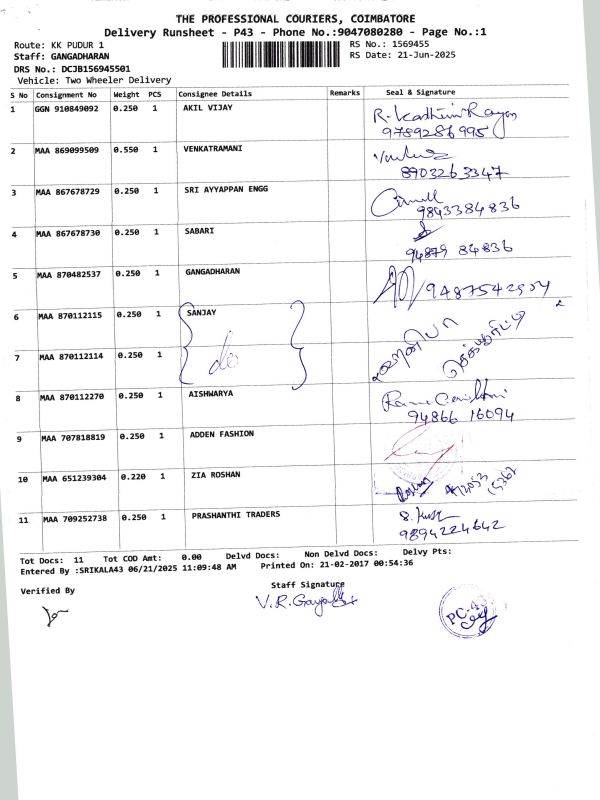 THE PROFESSIONAL COURIERS, COIMBATORE
Delivery Runsheet - P43 - Phone No.:9047080280 - Page No.:1
Route: KK PUDUR 1 RS No.: 1569455
Staff: GANGADHARAN RS Date: 21-Jun-2025
DRS No.: DCJB156945501
Vehicle: Two Wheeler Delivery
S No Consignment No Weight PCS Consignee Details Remarks Seal & Signature
1 GGN 910849092 0.250 1 AKIL VIJAY
9789286995
2 MAA 869099509 0.550 1 VENKATRAMANI
8903263347
3 MAA 867678729 0.250 1 SRI AYYAPPAN ENGG
9843384836
4 MAA 867678730 0.250 1 SABARI
94879 84836
5 MAA 870482537 0.250 1 GANGADHARAN
9487542904
6 MAA 870112115 0.250 1 SANJAY
7 MAA 870112114 0.250 1 do
8 MAA 870112270 0.250 1 AISHWARYA
94866 16094
9 MAA 707818819 0.250 1 ADDEN FASHION
10 MAA 651239304 0.220 1 ZIA ROSHAN
11 MAA 709252738 0.250 1 PRASHANTHI TRADERS
9894224642
Tot Docs: 11 Tot COD Amt: 0.00 Delvd Docs: Non Delvd Docs: Delvy Pts:
Entered By :SRIKALA43 06/21/2025 11:09:48 AM Printed On: 21-02-2017 00:54:36
Staff Signature
Verified By
V.R.
PC-43